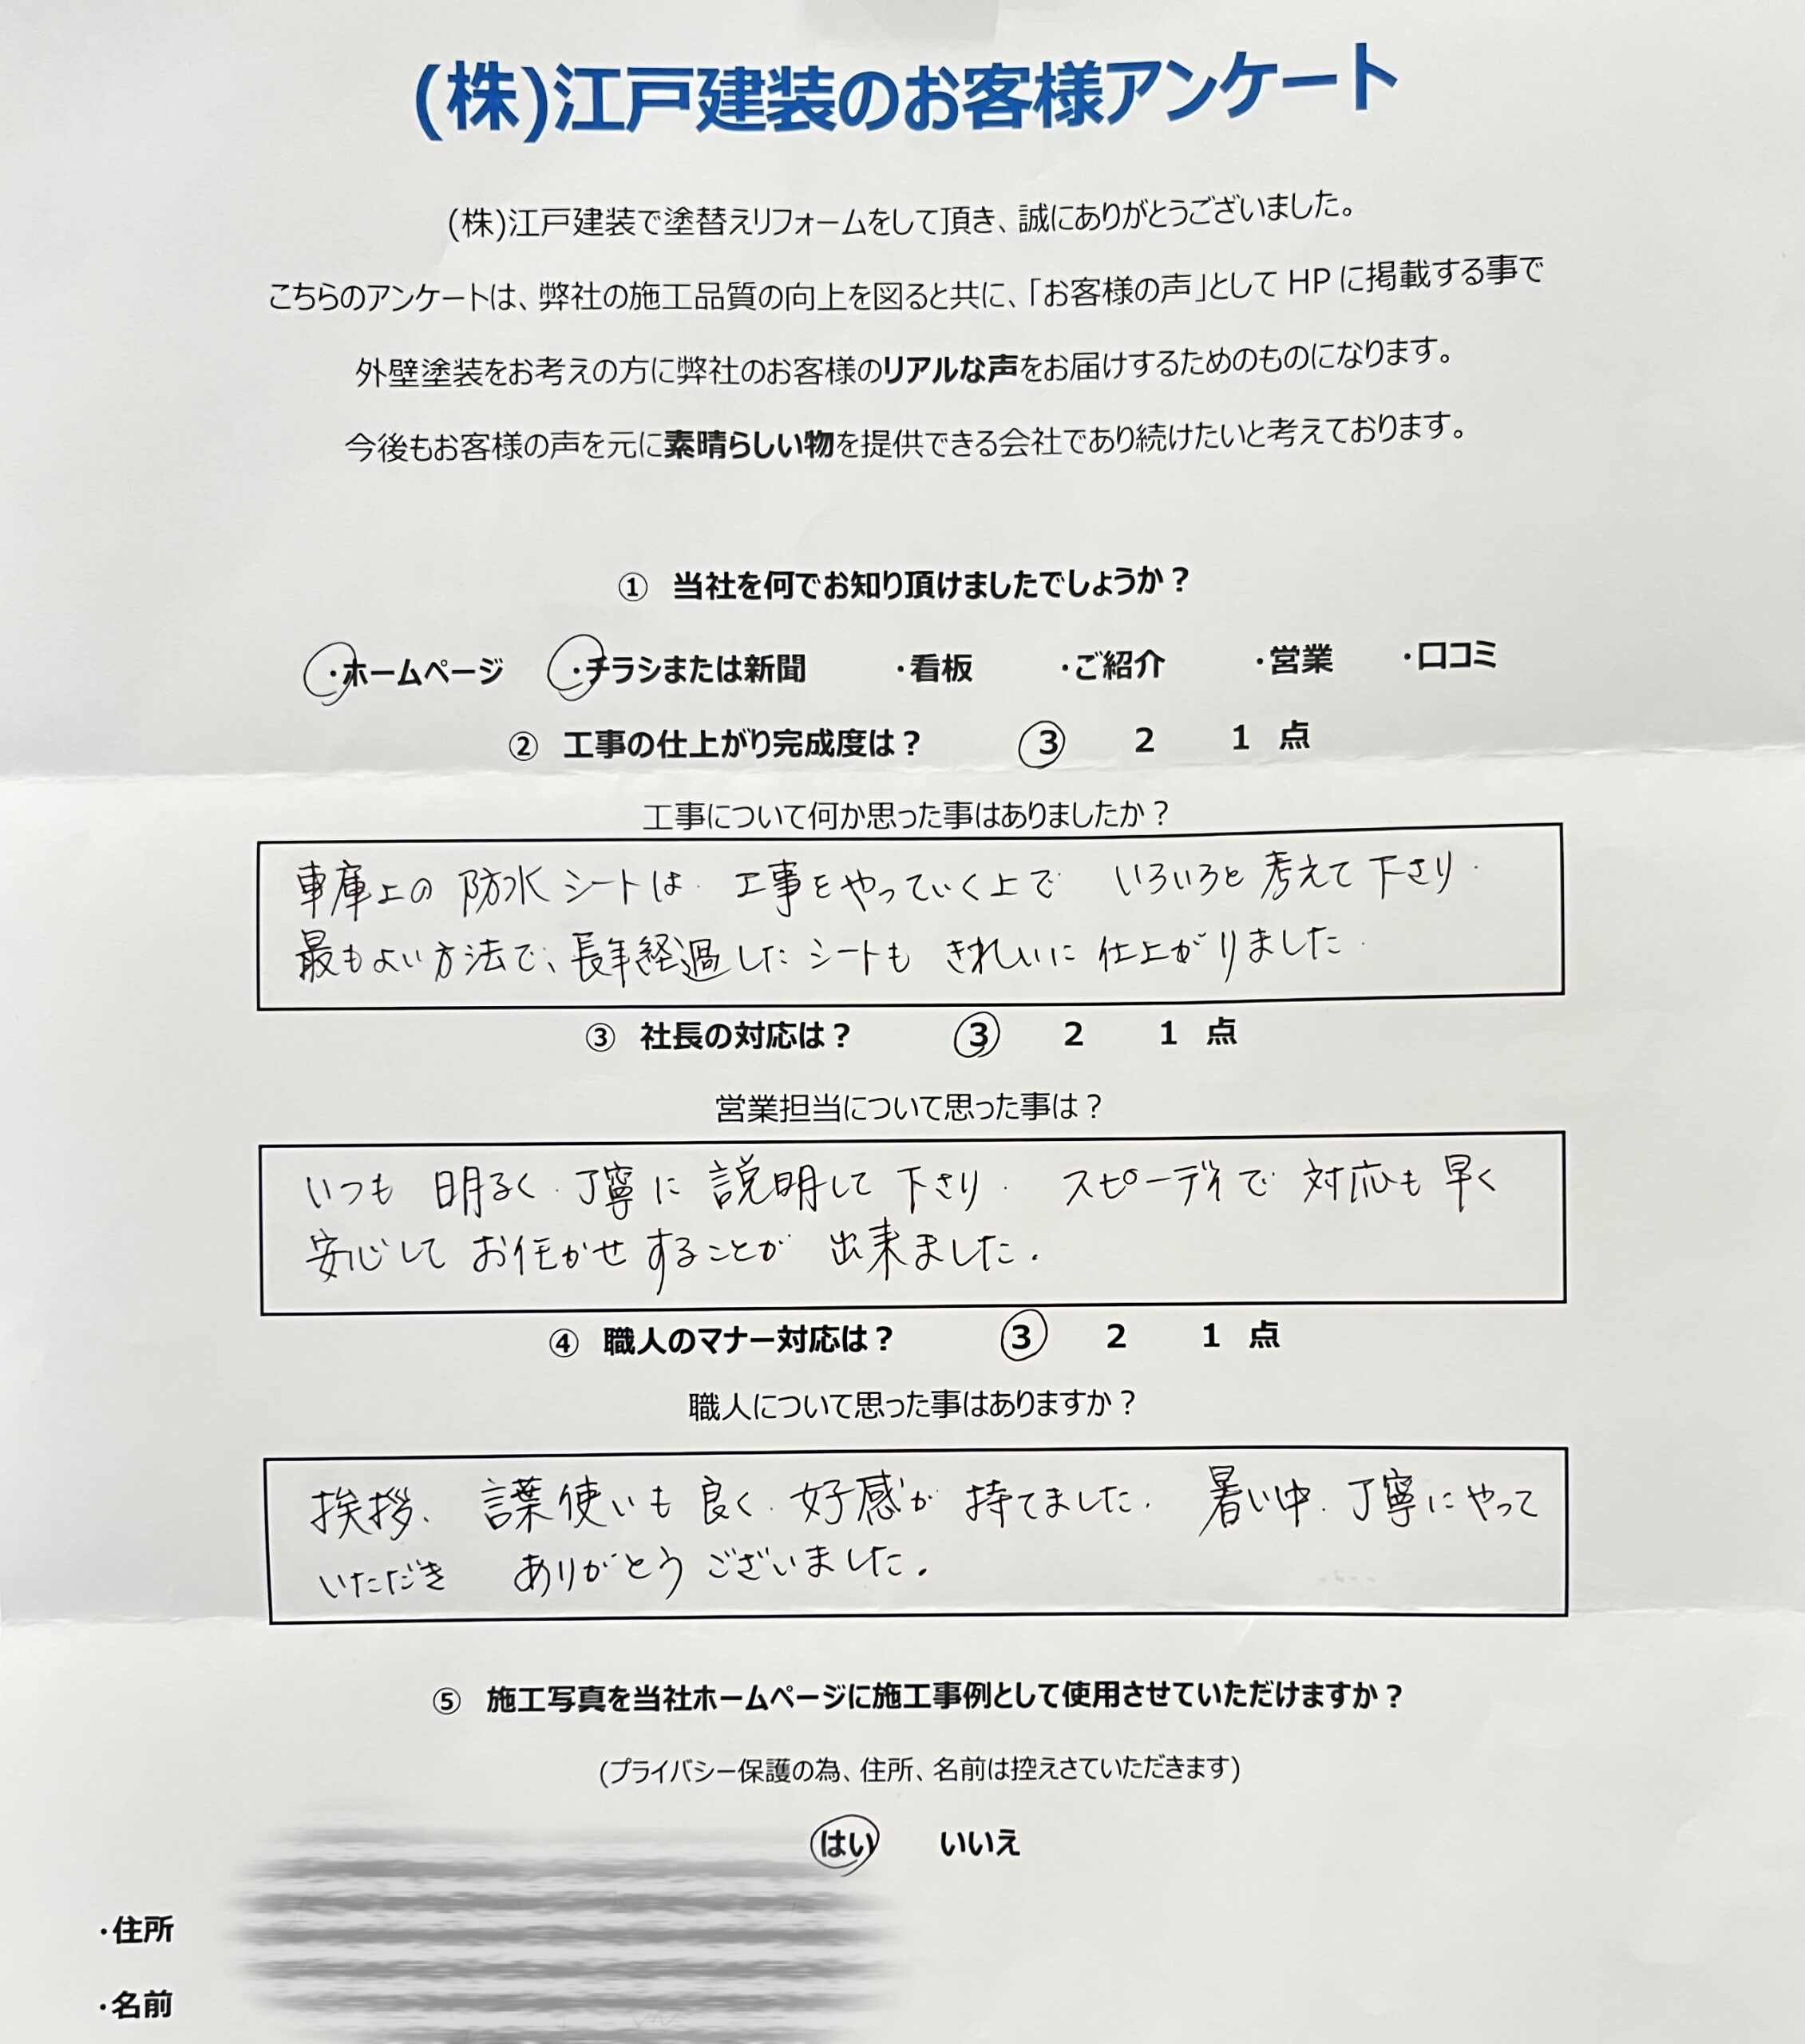 (株)江戸建装のお客様アンケート
(株)江戸建装で塗替えリフォームをして頂き、誠にありがとうございました。
こちらのアンケートは、弊社の施工品質の向上を図ると共に、「お客様の声」として HP に掲載する事で
外壁塗装をお考えの方に弊社のお客様のリアルな声をお届けするためのものになります。
今後もお客様の声を元に素晴らしい物を提供できる会社であり続けたいと考えております。
① 当社を何でお知り頂けましたでしょうか？
・ホームページ ・チラシまたは新聞 ・看板 ・ご紹介 ・営業 ・口コミ
② 工事の仕上がり完成度は？ 3 2 1 点
工事について何か思った事はありましたか？
車庫上の防水シートは 工事をやっていく上で いろいろと考えて下さり
最もよい方法で、長年経過したシートも きれいに仕上がりました
③ 社長の対応は？ 3 2 1 点
営業担当について思った事は？
いつも 明るく 丁寧に 説明して下さり スピーディで 対応も早く
安心して お任かせすることが 出来ました.
④ 職人のマナー対応は？ 3 2 1 点
職人について思った事はありますか？
挨拶、 言葉使いも良く 好感が持てました. 暑い中 丁寧にやって
いただき ありがとうございました.
⑤ 施工写真を当社ホームページに施工事例として使用させていただけますか？
(プライバシー保護の為、住所、名前は控えさていただきます)
はい いいえ
・住所
・名前